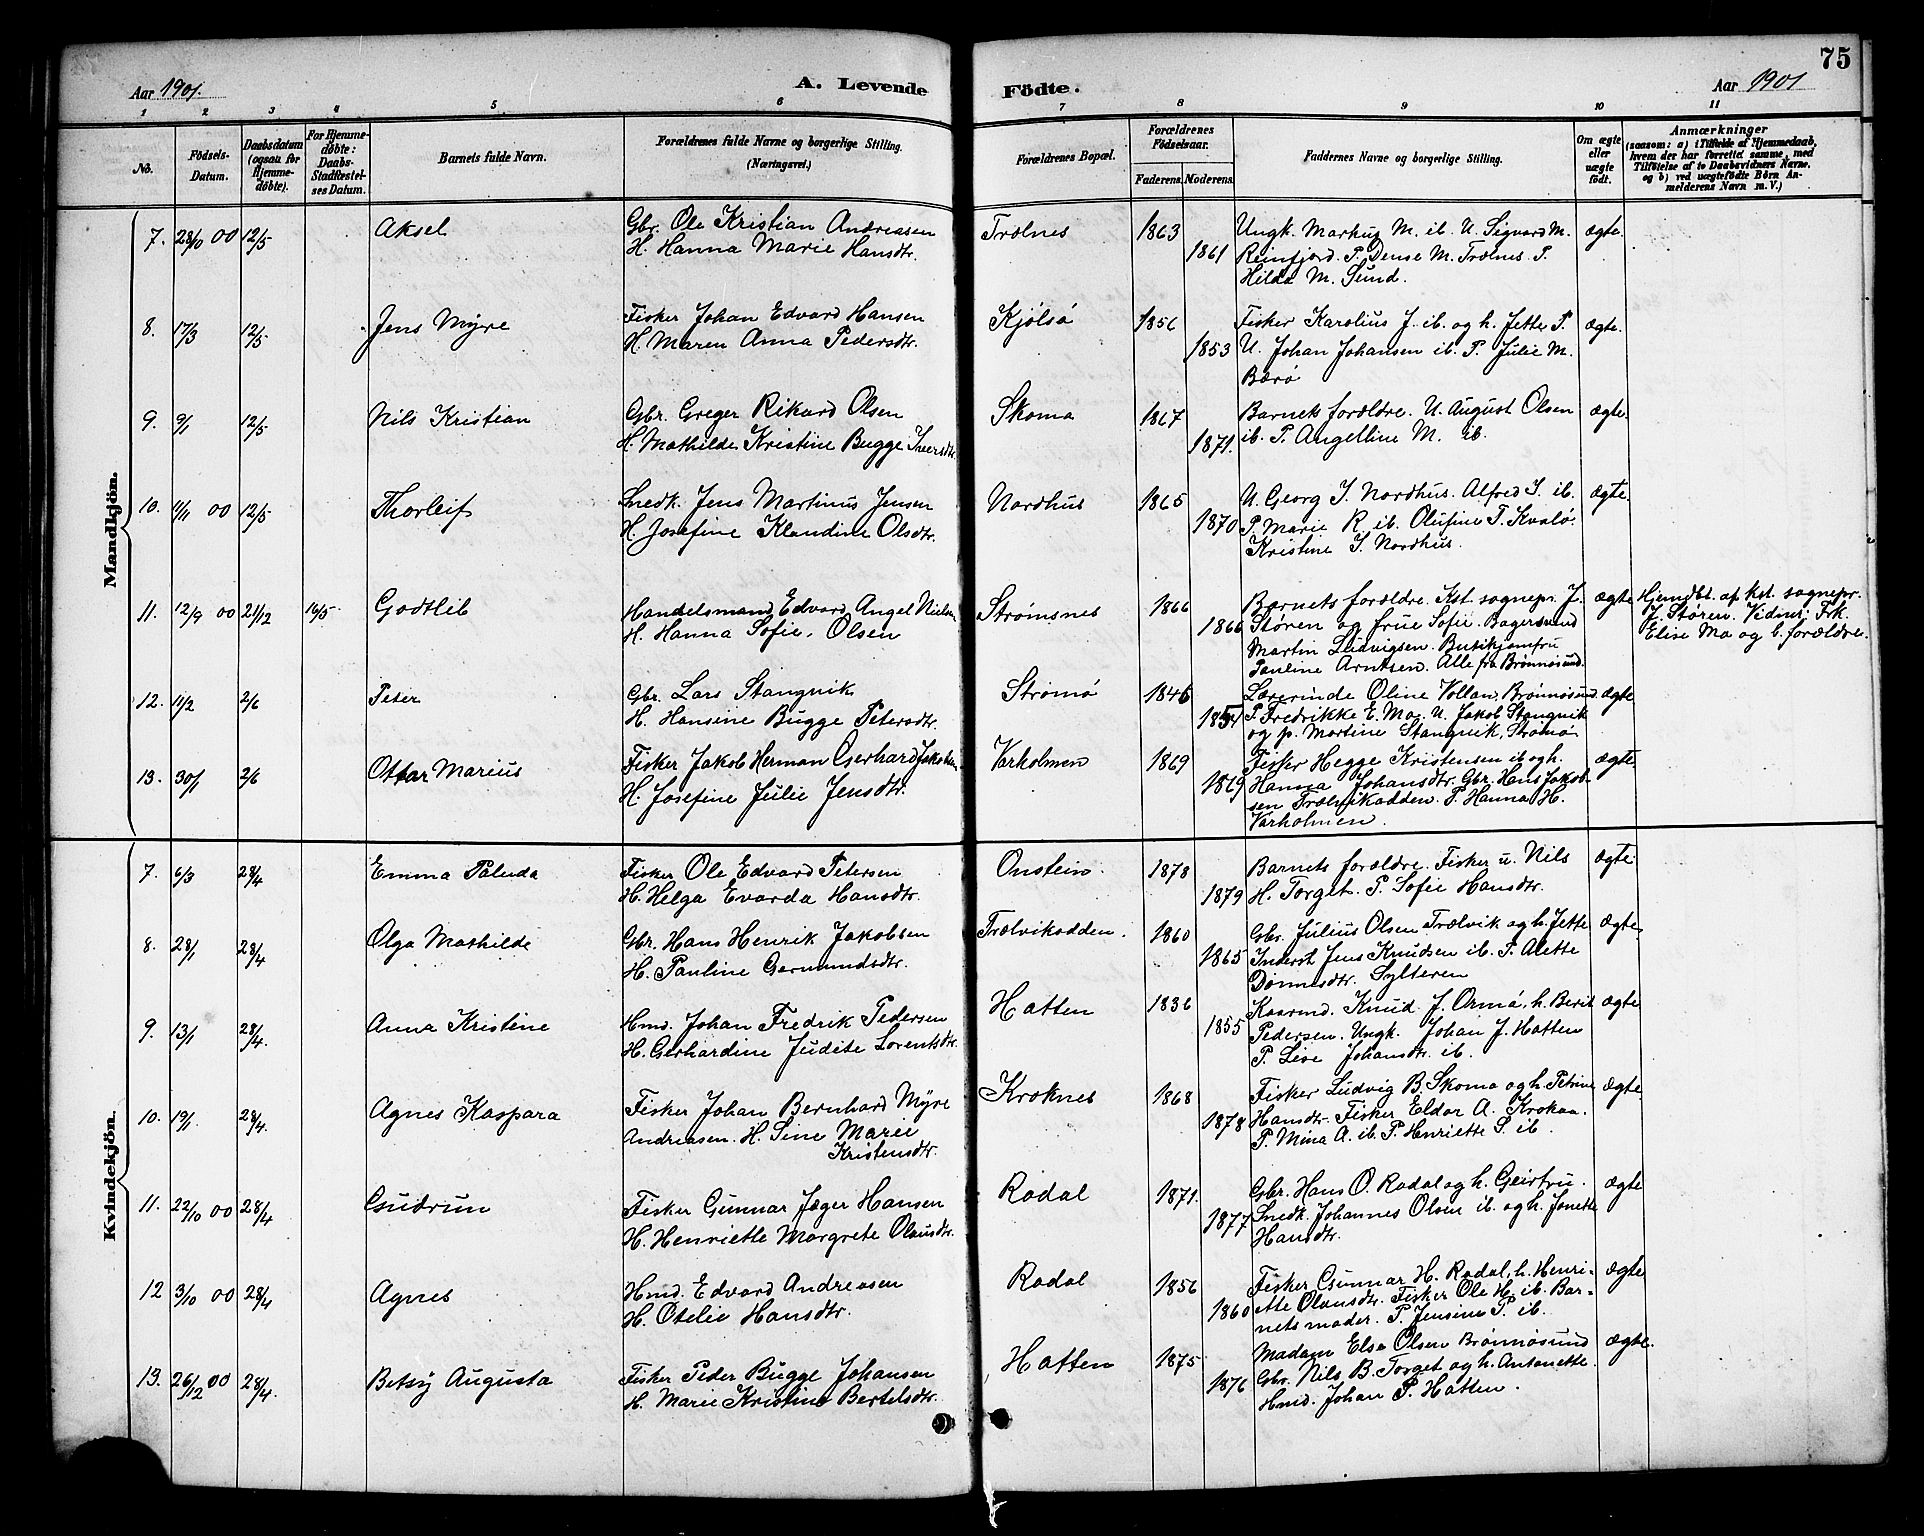 75
Aar 1901.
A. Levende
Födte.
Aar 1901
1 2 3 4 5 6 7 8 9 10 11
No.
Födsels-Datum.
Daabsdatum (ogsaa for Hjemme-döbte).
For Hjemme-döbte: Daabs-Stadfæstel-ses Datum.
Barnets fulde Navn.
Forældrenes fulde Navne og borgerlige Stilling.
(Næringsvei.)
Forældrenes Bopæl.
Forældrenes Födselsaar.
Faderens. Moderens.
Faddernes Navne og borgerlige Stilling.
Om ægte eller uægte födt.
Anmærkninger
(saasom: a) i Tilfælde af Hjemmedaab, hvem der har forrettet samme, med Tilföielse af to Daabsvidners Navne, og b) ved uægtefödte Börn An-melderens Navn m. V.)
Mandkjön.
7. 28/10 00 12/5 Aksel Gbr. Ole Kristian Andreasen Trælnes 1863 Ungk. Markus M. ib. U. Sigvard M. ægte.
H. Hanna Marie Hansdtr. 1861 Reinfjord. P. Dense M. Trælnes. P.
Hilda M. Sund.
8. 17/3 12/5 Jens Myre Fisker Johan Edvard Hansen Kjölsö 1856 Fisker Karolius J. ib. og h. Jette P. ægte.
H. Maren Anna Pedersdtr. 1853 U. Johan Johansen ib. P. Julie M.
Bærö
9. 9/1 12/5 Nils Kristian Gbr. Greger Rikard Olsen Skoma 1867 Barnets forældre. U. August Olsen ægte.
H. Mathilde Kristine Bugge Iversdtr. 1871. ib. P. Angelline M. ib.
10. 11/11 00 12/5 Thorleif Snedk. Jens Martinus Jensen Nordhus 1865 U. Georg J. Nordhus. Alfred J. ib. ægte.
H. Josefine Klaudine Olsdtr. 1870 P. Marie R. ib. Olufine T. Kvalö.
Kristine J. Nordhus.
11. 12/9 00 21/12 16/5 Godtlib Handelsmand Edvard Angel Nielsen Strömsnes 1866 Barnets forældre. Kst. sognepr. J. ægte Hjemdbt. af kst. sognepr.
H. Hanna Sofie Olsen 1866 Stören og frue Sofie. Bagersvend J. Stören. Vidner: Frk.
Martin Ludvigsen. Butikjomfru Elise Mo og b. forældre.
Pauline Arntsen. Alle fra Brönnösund.
12. 11/2 2/6 Peter Gbr. Lars Stangvik Strömö 1846 Lærerinde Oline Vollan, Brönnösund ægte
H. Hansine Bugge Petersdtr. 1854 P. Fredrikke E. Mo. U. Jakob Stangvik
og p. Martine Stangvik, Strömö
13. 30/1 2/6 Ottar Marius Fisker Jakob Herman Gerhard Jakobsen Varholmen 1869 Fisker Hegge Kristensen ib og h. ægte
H. Josefine Julie Jensdtr. 1869 Hanna Johansdtr. Gbr. Hans Jakob-
sen Trælvikodden. P. Hanna H.
Varholmen.
Kvindekjön.
7. 6/3 28/4 Emma Paluda Fisker Ole Edvard Petersen Onstein. 1878 Barnets forældre. Fisker u. Nils ægte.
H. Helga Evarda Hansdtr. 1879 H. Torget. P. Sofie Hansdtr.
8. 28/1 28/4 Olga Mathilde Gbr. Hans Henrik Jakobsen Trælvikodden. 1860 Gbr. Julius Olsen Trælvik og h. Jette ægte
H. Pauline Germundsdtr. 1865 Inderst Jens Knudsen ib. P. Alette
Dönnesdtr. Sylteren
9. 13/1 28/4. Anna Kristine Hmd. Johan Fredrik Pedersen Hatten 1836 Kaarmd. Knud J. Ormö, h. Berit ægte
H. Gerhardine Judite Lorentsdtr. 1855 Pedersen. Ungk. Johan J. Hatten
P. Lise Johansdtr. ib.
10. 19/1. 28/4. Agnes Kaspara Fisker Johan Bernhard Myre Kroknes 1868 Fisker Ludvig B. Skoma og h. Petrine ægte
Andreasen. H. Sine Marie 1878 Hansdtr. Fisker Eldar A. Krokaa.
Kristensdtr. P. Mina A. ib. P. Henriette S. ib.
11. 22/10 00 28/4 Gudrun Fisker Gunnar Jæger Hansen Rodal 1871. Gbr. Hans O. Rodal og h. Geirtru. ægte
H. Henriette Margrete Olausdtr. 1877 Snedk. Johannes Olsen ib. og h. Jonette
Hansdtr.
12 3/10 00 28/4 Agnes Hmd. Edvard Andreasen Rodal 1856 Fisker Gunnar H. Rodal, h. Henri- ægte
H. Otelie Hansdtr. 1860 ette Olausdtr. Fisker Ole H. ib. Bar-
nets moder. P. Jensine P. ib.
13. 26/12 00 28/4. Betsy Augusta Fisker Peder Bugge Johansen Hatten 1875 Madam Elsa Olsen Brönnösund ægte.
H. Marie Kristine Bertelsdtr. 1876 Gbr. Nils B. Torget og h. Antonette.
Hmd. Johan P. Hatten.